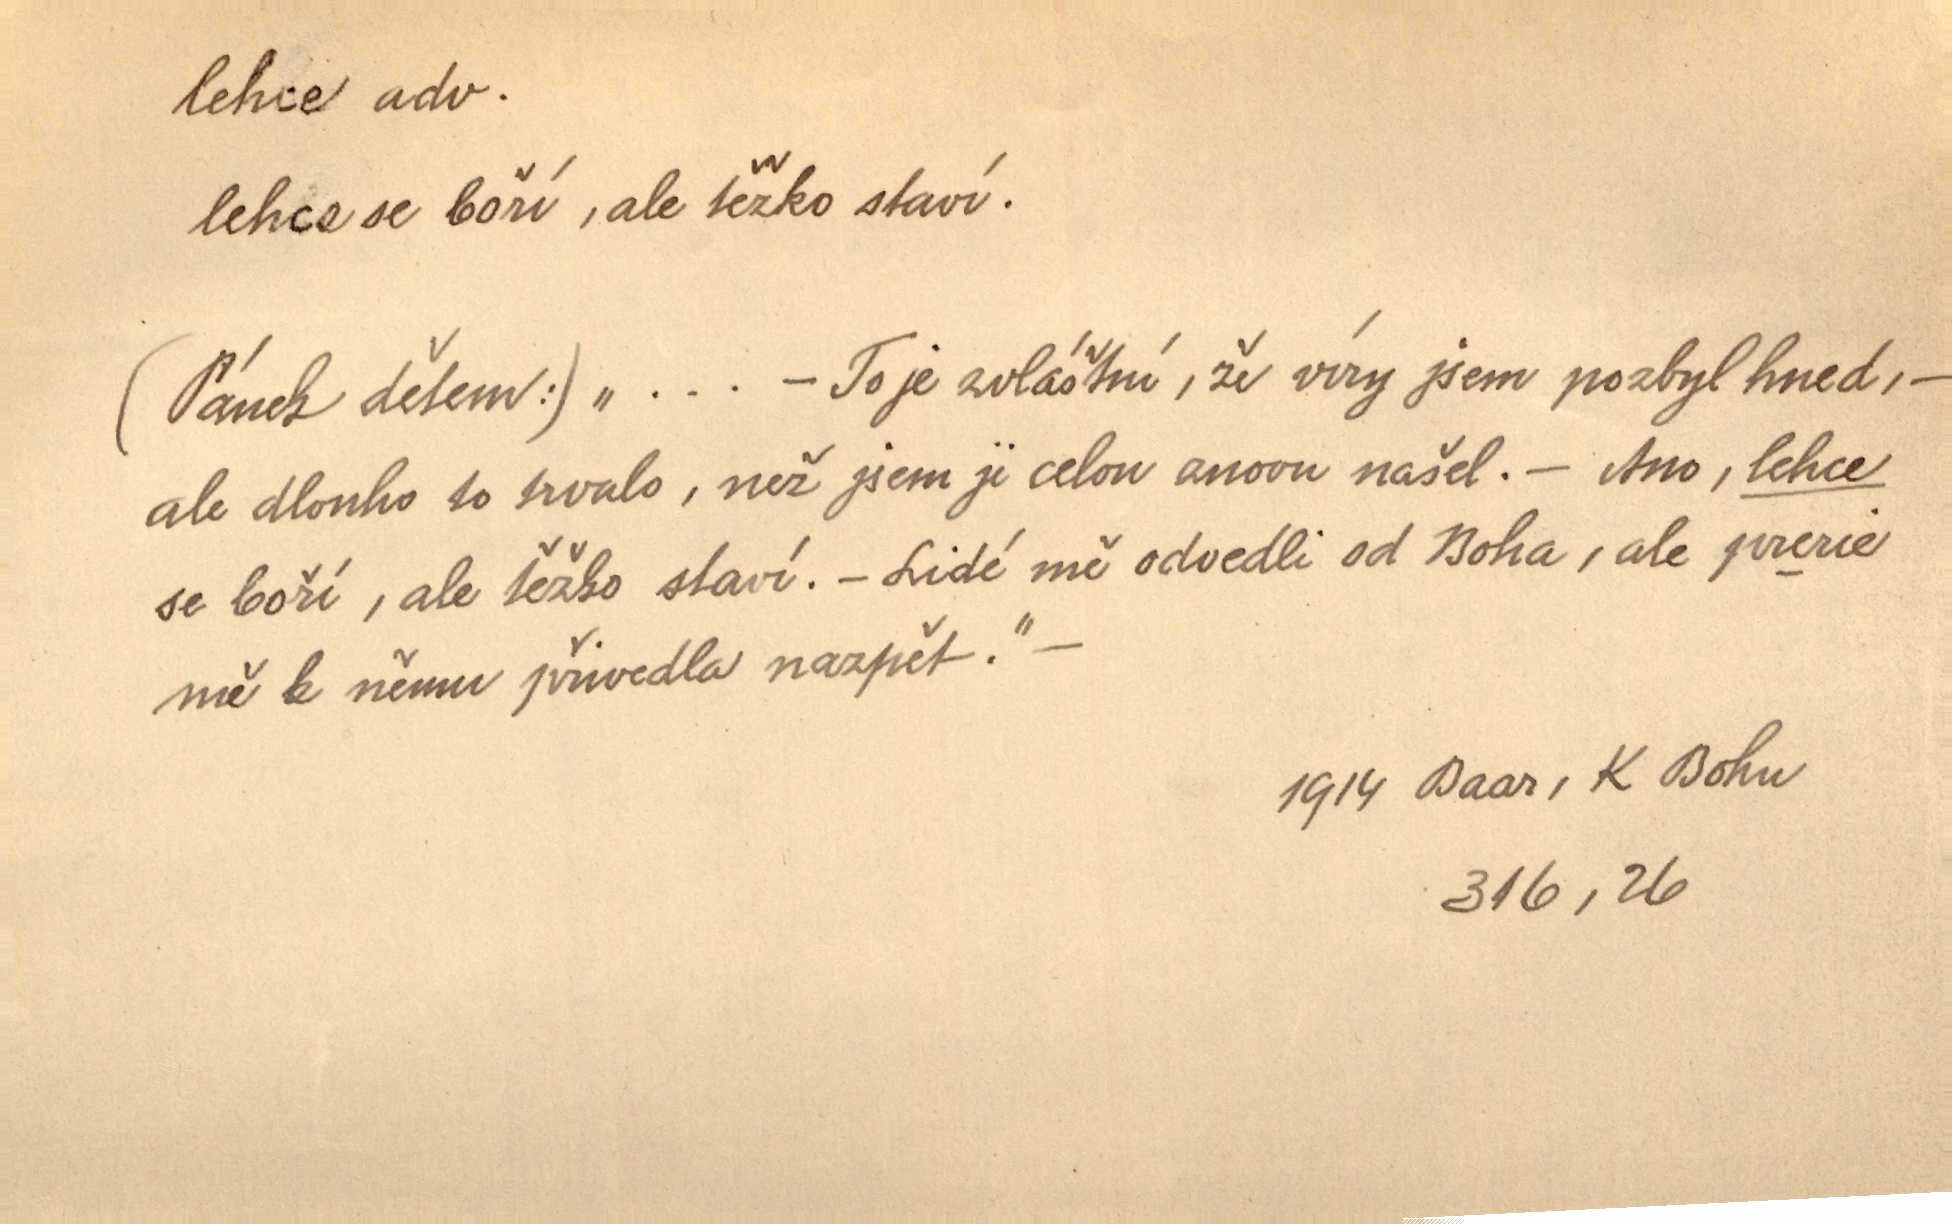 lehce adv.
lehce se boří, ale těžko staví.
(Pánek dětem:) „ . . . . – To je zvláštní, že víry jsem pozbyl hned, –
ale dlouho to trvalo, než jsem ji celou znovu našel. – Ano, lehce
se boří, ale těžko staví. – Lidé mě odvedli od Boha, ale prerie
mě k němu přivedla nazpět." –
1914 Baar, K Bohu
316, 26